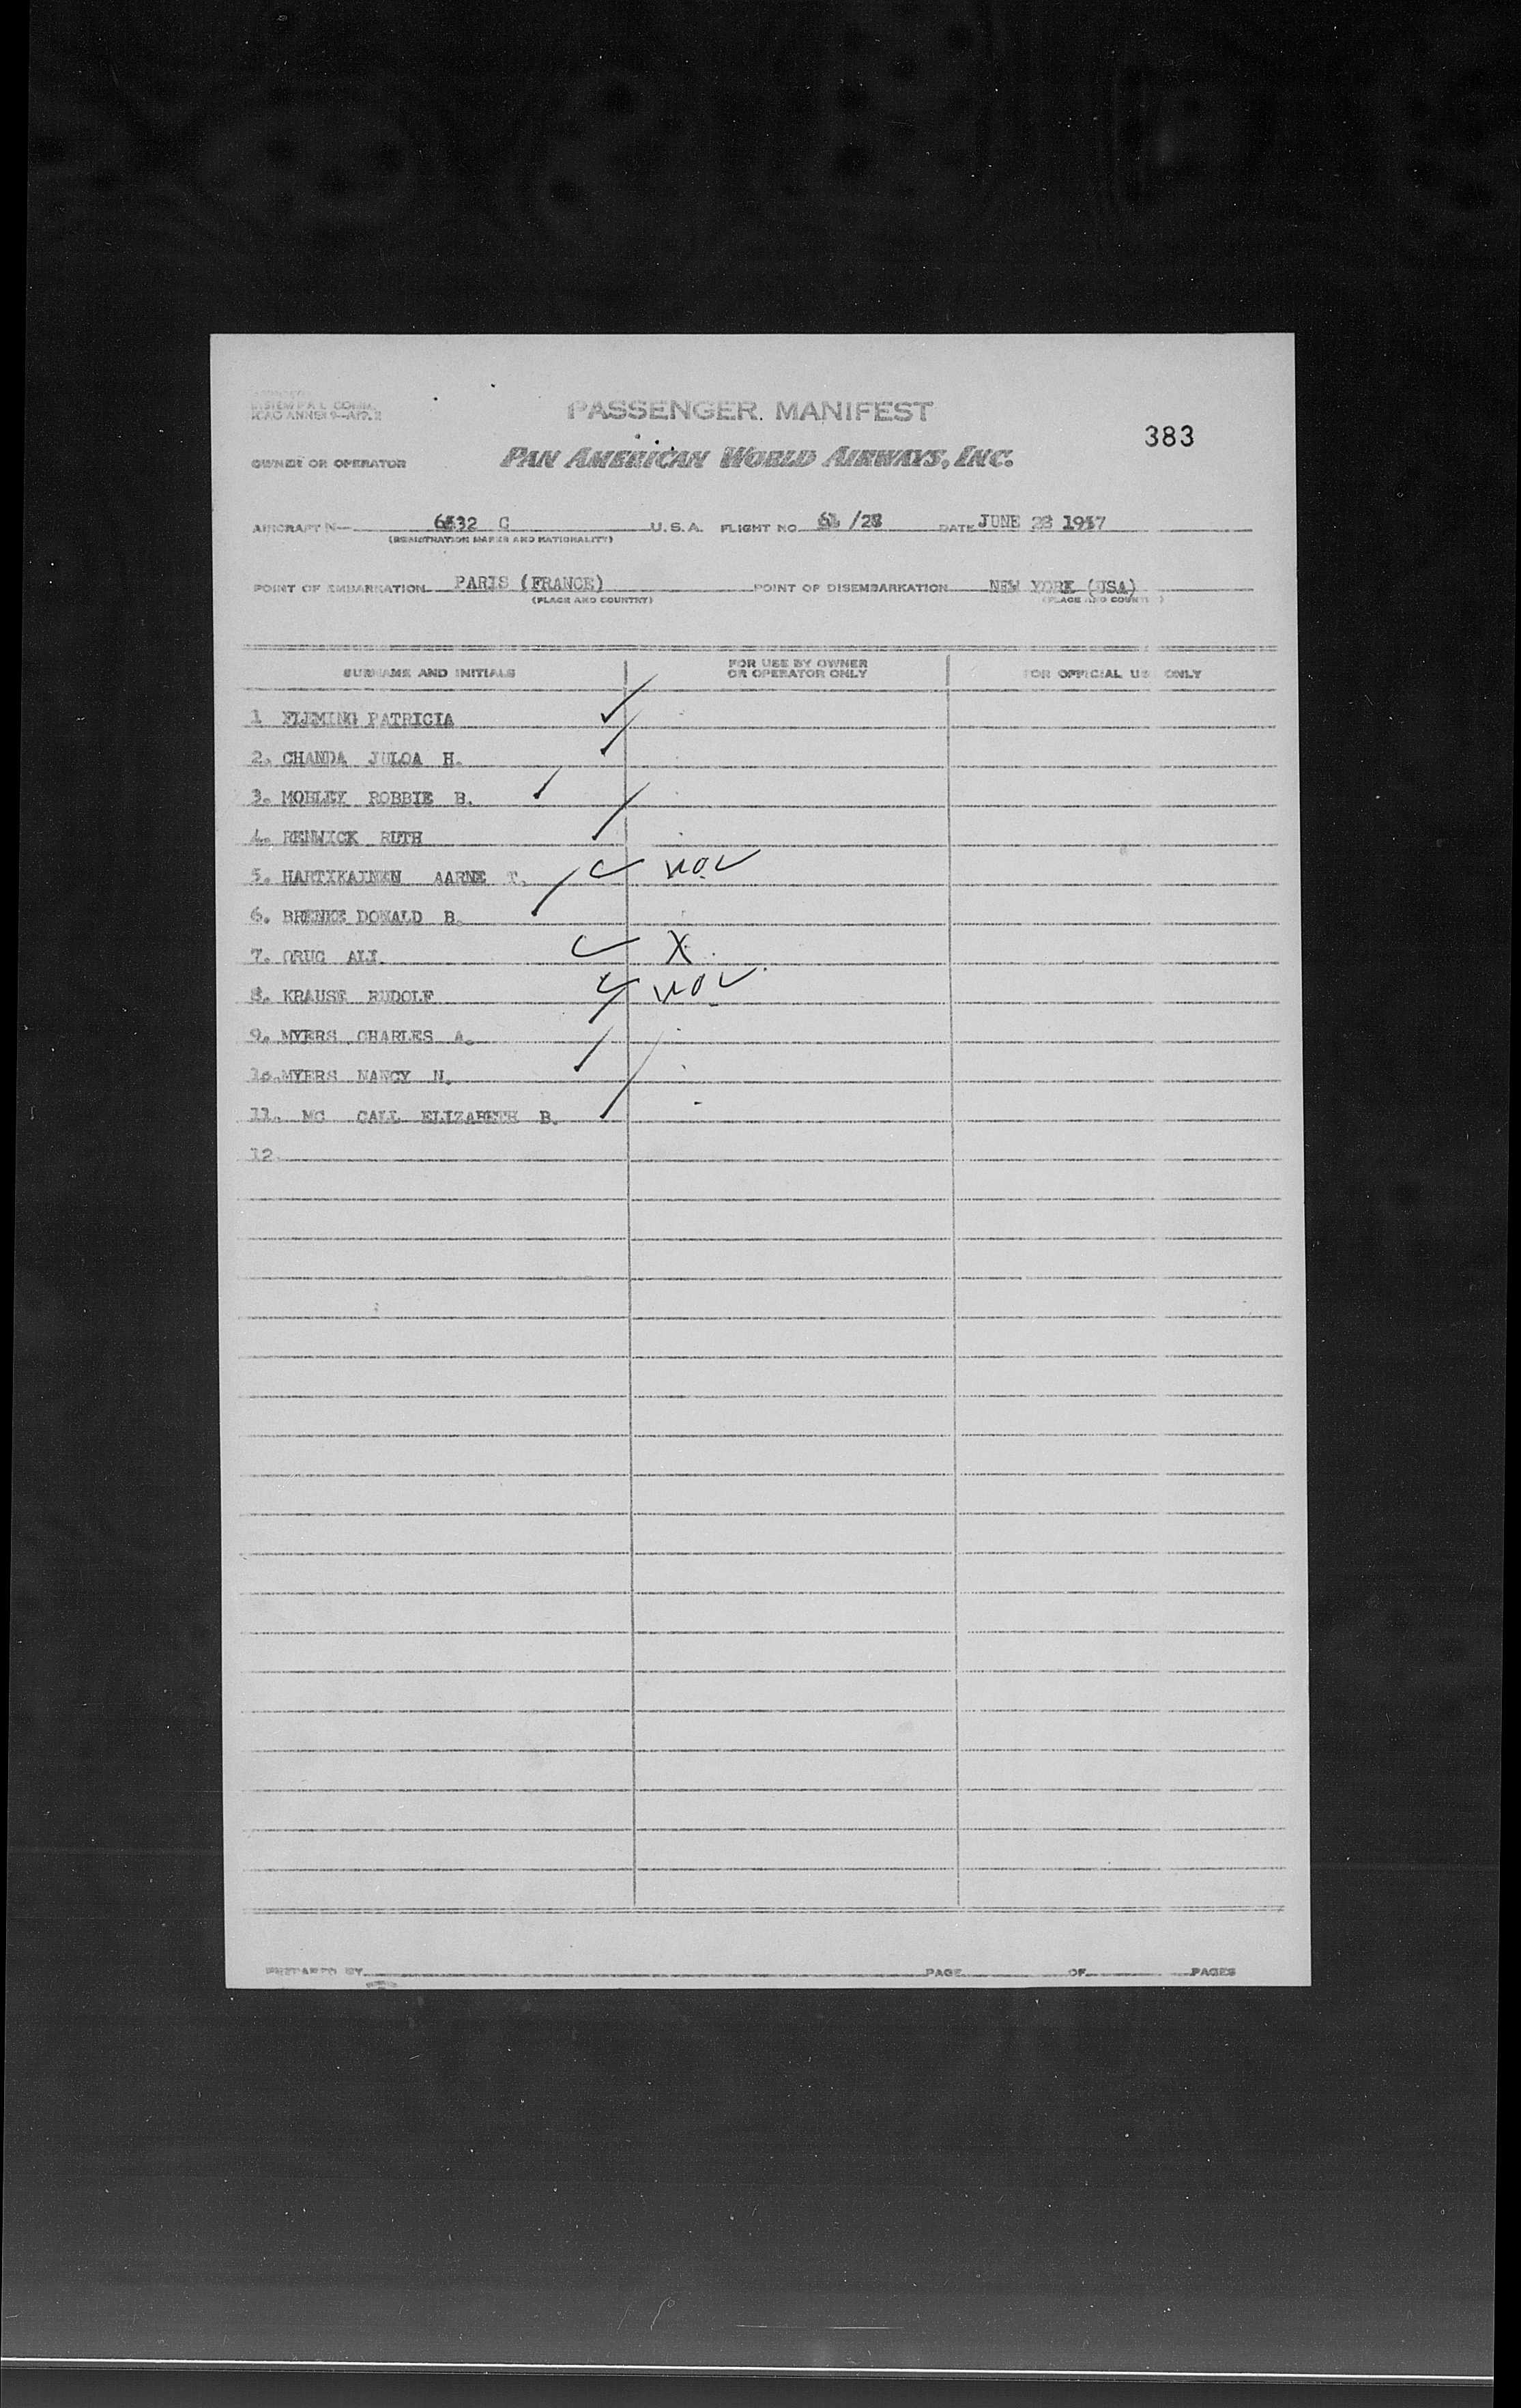 SYSTEM P.R.L. COMM.
ICAO ANNEX 9—APP. 2
PASSENGER MANIFEST
383
OWNER OR OPERATOR PAN AMERICAN WORLD AIRWAYS, INC.
AIRCRAFT N— 6532 C U.S.A. FLIGHT NO. /28 DATE JUNE 28 1957
(REGISTRATION MARKS AND NATIONALITY)
POINT OF EMBARKATION PARIS (FRANCE) POINT OF DISEMBARKATION NEW YORK (USA)
(PLACE AND COUNTRY) (PLACE AND COUNTRY)
SURNAME AND INITIALS FOR USE BY OWNER OR OPERATOR ONLY FOR OFFICIAL USE ONLY
1 FLEMING PATRICIA
2. CHANDA JULOA H.
3. MOBLEY ROBBIE B.
4. RENWICK RUTH
5. HARTIKAINEN AARNE T.
6. BRENKE DONALD B.
7. ORUC ALI. X
8. KRAUSE RUDOLF
9. MYERS CHARLES A.
10. MYERS NANCY N.
11. MC CALL ELIZABETH B.
12
PREPARED BY PAGE OF PAGES